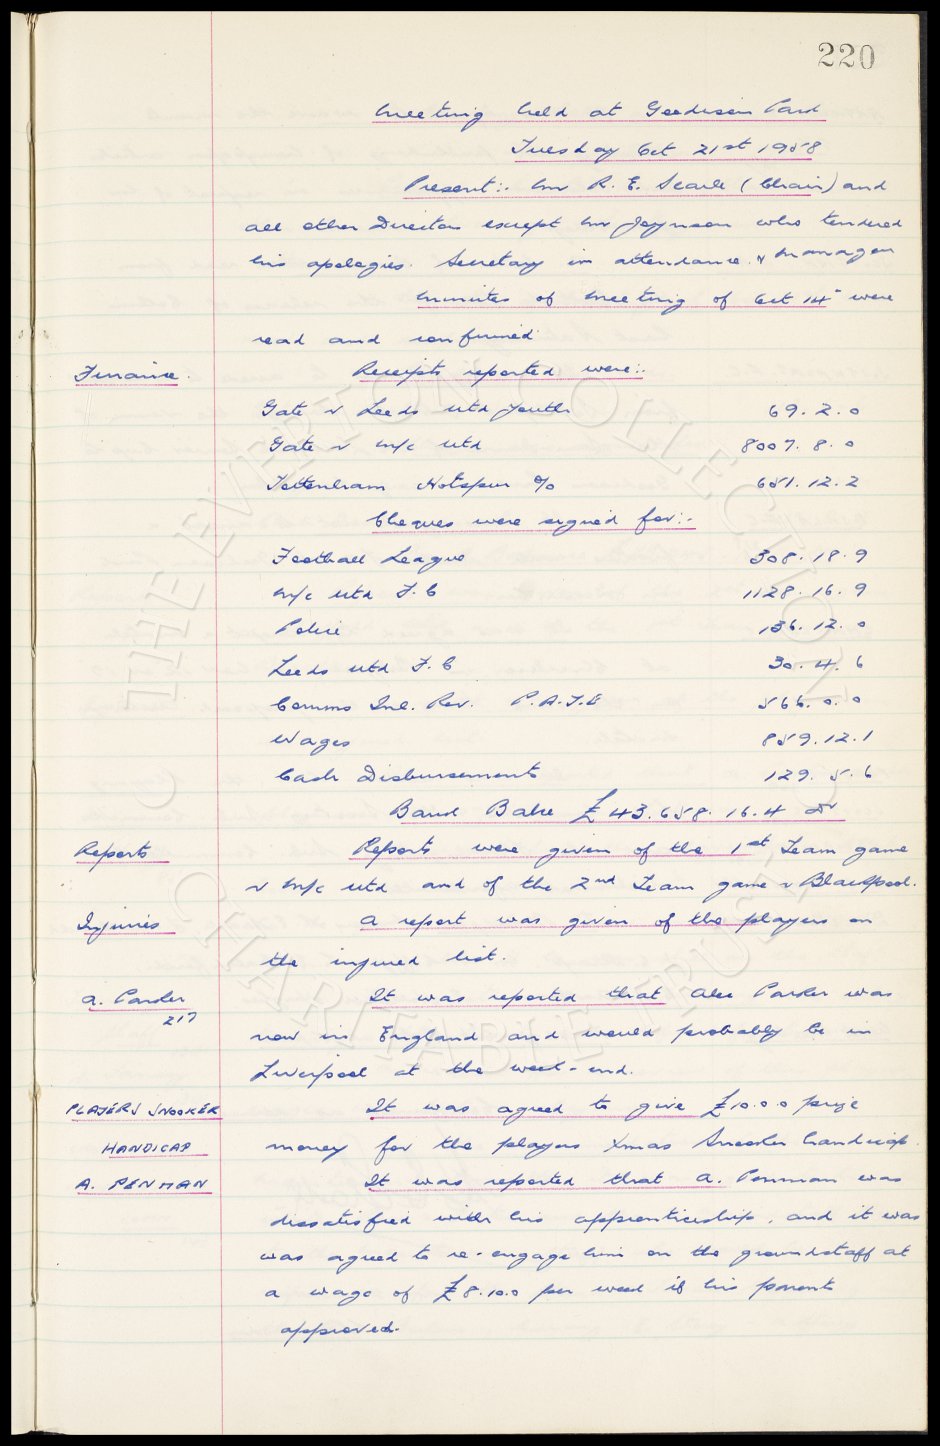 220
Meeting held at Goodison Park
Tuesday Oct 21st 1958
Present:- Mr R. E. Searle (Chair) and
all other Directors except Mr Joynson who tendered
his apologies. Secretary in attendance. & Manager
Minutes of Meeting of Oct 14th were
read and confirmed
Finance. Receipts reported were:-
Gate v Leeds Utd Youth 69. 2. 0
Gate v M/c Utd 8007. 8. 0
Tottenham Hotspur % 651. 12. 2
Cheques were signed for:-
Football League 308. 18. 9
M/c Utd F. C 1128. 16. 9
Police 136. 12. 0
Leeds Utd F. C 30. 4. 6
Comms Inl. Rev. P.A.Y.E 566. 0. 0
Wages 859. 12. 1
Cash Disbursements 129. 5. 6
Bank Balce £43.658. 16. 4 Dr
Reports Reports were given of the 1st Team game
v M/c Utd and of the 2nd Team game v Blackpool.
Injuries A report was given of the players on
the injured list.
A. Parker It was reported that Alex Parker was
217
now in England and would probably be in
Liverpool at the week-end.
PLAYERS SNOOKER It was agreed to give £10.0.0 prize
HANDICAP money for the players Xmas Snooker handicap.
A. PENMAN It was reported that A. Penman was
dissatisfied with his apprenticeship, and it was
was agreed to re-engage him on the groundstaff at
a wage of £8.10.0 per week if his parents
approved.
© THE EVERTON COLLECTION
CHARITABLE TRUST